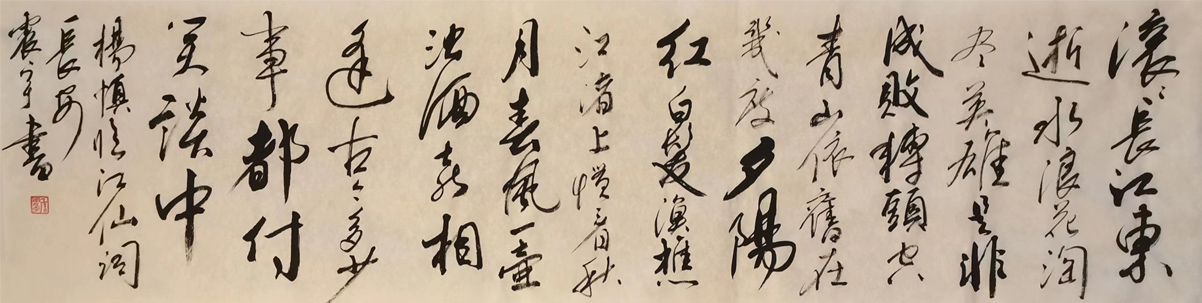 滾滾長江東
逝水浪花淘
尽英雄是非
成敗轉頭空
青山依舊在
幾度夕陽
红白髮漁樵
江渚上慣看秋
月春風一壺
浊酒喜相
逢古今多少
事都付
笑談中
楊慎臨江仙詞
長安
書